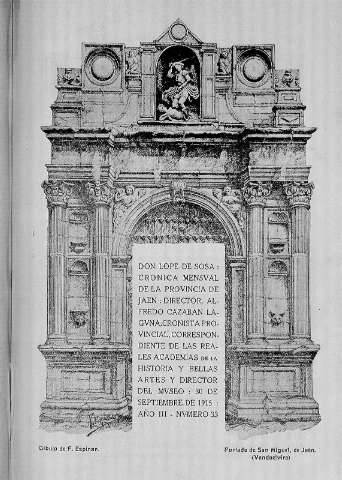 DON LOPE DE SOSA :
CRONICA MENSVAL
DE LA PROVINCIA DE
JAEN : DIRECTOR, AL-
FREDO CAZABAN LA-
GVNA, CRONISTA PRO-
VINCIAL, CORRESPON-
DIENTE DE LAS REA-
LES ACADEMIAS DE LA
HISTORIA Y BELLAS
ARTES Y DIRECTOR
DEL MVSEO : 30 DE
SEPTIEMBRE DE 1915 :
AÑO III - NVMERO 33
Dibujo de F. Espinar.
Portada de San Miguel, de Jaén.
(Vandaelvira)